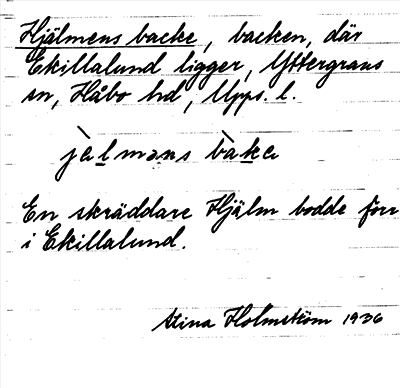 Hjälmens backe, backen, där
Ekillalund ligger, Yttergrans
sn, Håbo hd, Upps. l.
jèlmans bàka
En skräddare Hjälm bodde förr
i Ekillalund.
Stina Holmström 1936